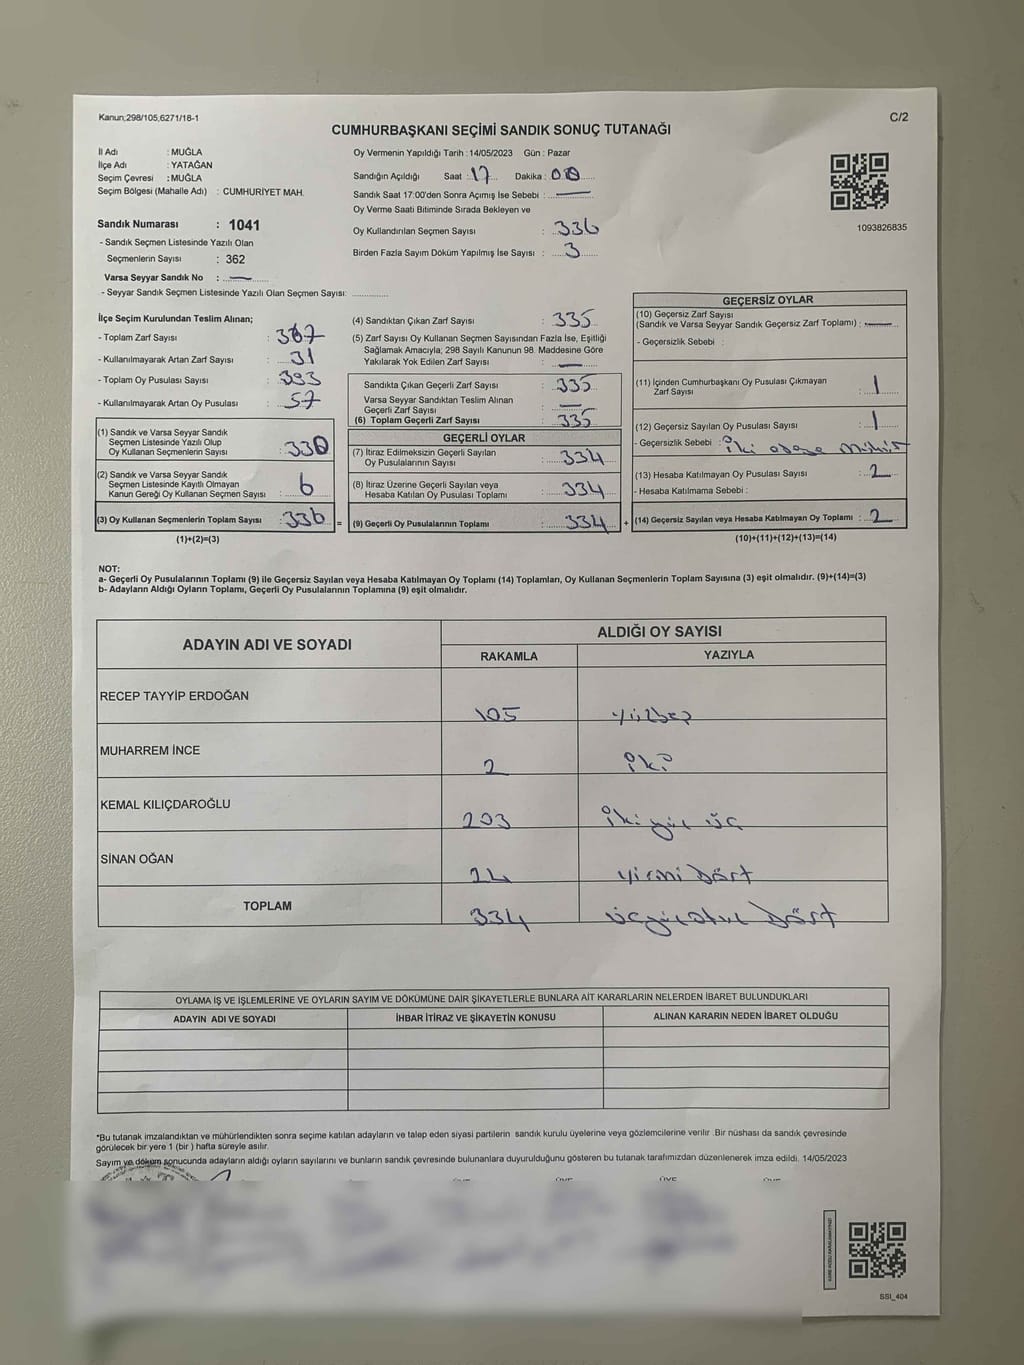 Kanun;298/105,6271/18-1
C/2
CUMHURBAŞKANI SEÇİMİ SANDIK SONUÇ TUTANAĞI
İl Adı : MUĞLA
İlçe Adı : YATAĞAN
Seçim Çevresi : MUĞLA
Seçim Bölgesi (Mahalle Adı) : CUMHURİYET MAH.
Sandık Numarası : 1041
- Sandık Seçmen Listesinde Yazılı Olan
Seçmenlerin Sayısı : 362
Varsa Seyyar Sandık No : —
- Seyyar Sandık Seçmen Listesinde Yazılı Olan Seçmen Sayısı:
Oy Vermenin Yapıldığı Tarih :14/05/2023 Gün : Pazar
Sandığın Açıldığı Saat : 17 Dakika : 00
Sandık Saat 17:00'den Sonra Açımış İse Sebebi : —
Oy Verme Saati Bitiminde Sırada Bekleyen ve
Oy Kullandırılan Seçmen Sayısı : 336
Birden Fazla Sayım Döküm Yapılmış İse Sayısı : 3
1093826835
İlçe Seçim Kurulundan Teslim Alınan;
- Toplam Zarf Sayısı : 367
- Kullanılmayarak Artan Zarf Sayısı : 31
- Toplam Oy Pusulası Sayısı : 393
- Kullanılmayarak Artan Oy Pusulası : 57
(1) Sandık ve Varsa Seyyar Sandık
Seçmen Listesinde Yazılı Olup
Oy Kullanan Seçmenlerin Sayısı : 330
(2) Sandık ve Varsa Seyyar Sandık
Seçmen Listesinde Kayıtlı Olmayan
Kanun Gereği Oy Kullanan Seçmen Sayısı : 6
(3) Oy Kullanan Seçmenlerin Toplam Sayısı : 336 =
(1)+(2)=(3)
(4) Sandıktan Çıkan Zarf Sayısı : 335
(5) Zarf Sayısı Oy Kullanan Seçmen Sayısından Fazla İse, Eşitliği
Sağlamak Amacıyla; 298 Sayılı Kanunun 98. Maddesine Göre
Yakılarak Yok Edilen Zarf Sayısı : —
Sandıkta Çıkan Geçerli Zarf Sayısı : 335
Varsa Seyyar Sandıktan Teslim Alınan
Geçerli Zarf Sayısı : —
(6) Toplam Geçerli Zarf Sayısı : 335
GEÇERLİ OYLAR
(7) İtiraz Edilmeksizin Geçerli Sayılan
Oy Pusulalarının Sayısı : 334
(8) İtiraz Üzerine Geçerli Sayılan veya
Hesaba Katılan Oy Pusulası Toplamı : 334
(9) Geçerli Oy Pusulalarının Toplamı : 334 +
GEÇERSİZ OYLAR
(10) Geçersiz Zarf Sayısı
(Sandık ve Varsa Seyyar Sandık Geçersiz Zarf Toplamı) : —
- Geçersizlik Sebebi :
(11) İçinden Cumhurbaşkanı Oy Pusulası Çıkmayan
Zarf Sayısı : 1
(12) Geçersiz Sayılan Oy Pusulası Sayısı : 1
- Geçersizlik Sebebi : iki adaya
(13) Hesaba Katılmayan Oy Pusulası Sayısı : 2
- Hesaba Katılmama Sebebi :
(14) Geçersiz Sayılan veya Hesaba Katılmayan Oy Toplamı : 2
(10)+(11)+(12)+(13)=(14)
NOT:
a- Geçerli Oy Pusulalarının Toplamı (9) ile Geçersiz Sayılan veya Hesaba Katılmayan Oy Toplamı (14) Toplamları, Oy Kullanan Seçmenlerin Toplam Sayısına (3) eşit olmalıdır. (9)+(14)=(3)
b- Adayların Aldığı Oyların Toplamı, Geçerli Oy Pusulalarının Toplamına (9) eşit olmalıdır.
ADAYIN ADI VE SOYADI
ALDIĞI OY SAYISI
RAKAMLA YAZIYLA
RECEP TAYYİP ERDOĞAN 105 yüzbeş
MUHARREM İNCE 2 iki
KEMAL KILIÇDAROĞLU 203 iki yüz üç
SİNAN OĞAN 24 yirmi Dört
TOPLAM 334 üçyüzotuz Dört
OYLAMA İŞ VE İŞLEMLERİNE VE OYLARIN SAYIM VE DÖKÜMÜNE DAİR ŞİKAYETLERLE BUNLARA AİT KARARLARIN NELERDEN İBARET BULUNDUKLARI
ADAYIN ADI VE SOYADI İHBAR İTİRAZ VE ŞİKAYETİN KONUSU ALINAN KARARIN NEDEN İBARET OLDUĞU
*Bu tutanak imzalandıktan ve mühürlendikten sonra seçime katılan adayların ve talep eden siyasi partilerin sandık kurulu üyelerine veya gözlemcilerine verilir .Bir nüshası da sandık çevresinde
görülecek bir yere 1 (bir ) hafta süreyle asılır.
Sayım ve döküm sonucunda adayların aldığı oyların sayılarını ve bunların sandık çevresinde bulunanlara duyurulduğunu gösteren bu tutanak tarafımızdan düzenlenerek imza edildi. 14/05/2023
SSI_404